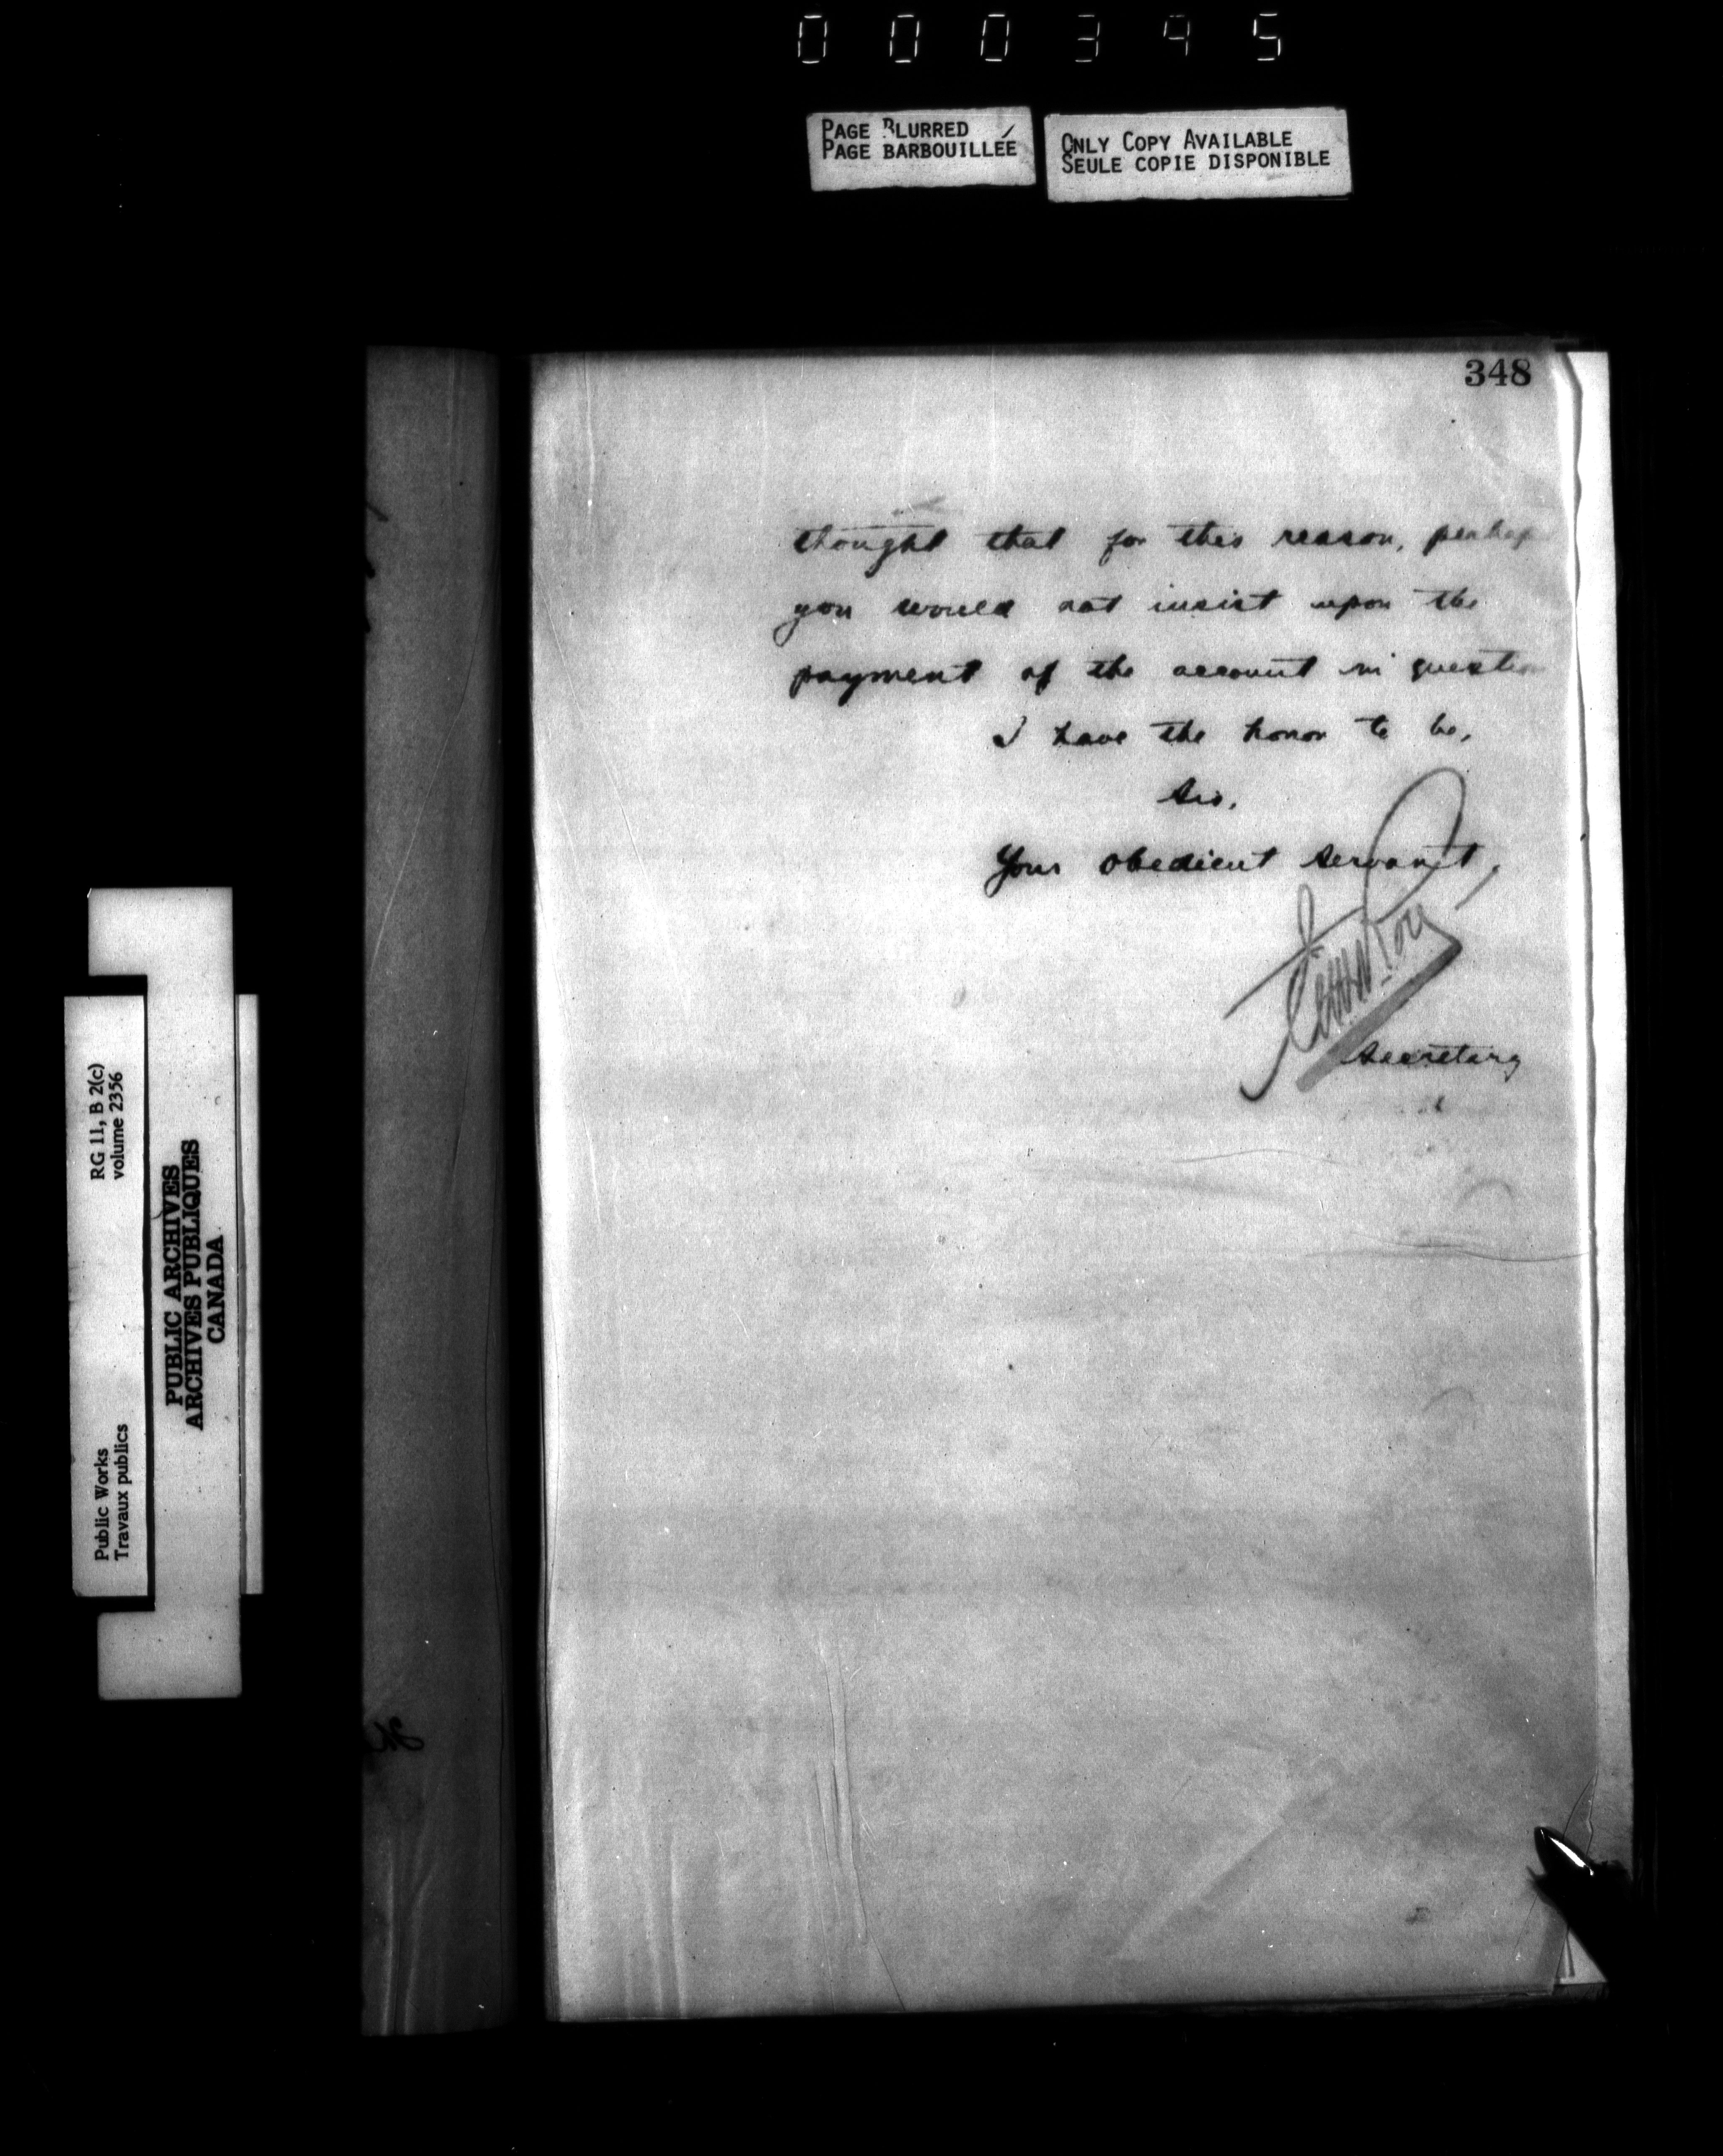 000345
PAGE BLURRED
PAGE BARBOUILLÉE
ONLY COPY AVAILABLE
SEULE COPIE DISPONIBLE
348
thought that for this reason, perhaps
you would not insist upon the
payment of the account in question
I have the honor to be,
Sir,
Your obedient servant,
Roy
Secretary
RG 11, B 2(c)
volume 2356
PUBLIC ARCHIVES
ARCHIVES PUBLIQUES
CANADA
Public Works
Travaux publics